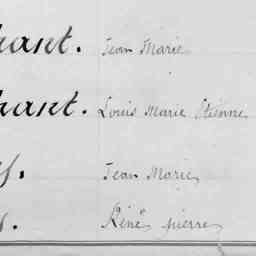 hart. Jean Marie
hart. Louis Marie Etienne
Jean Marie
René pierre